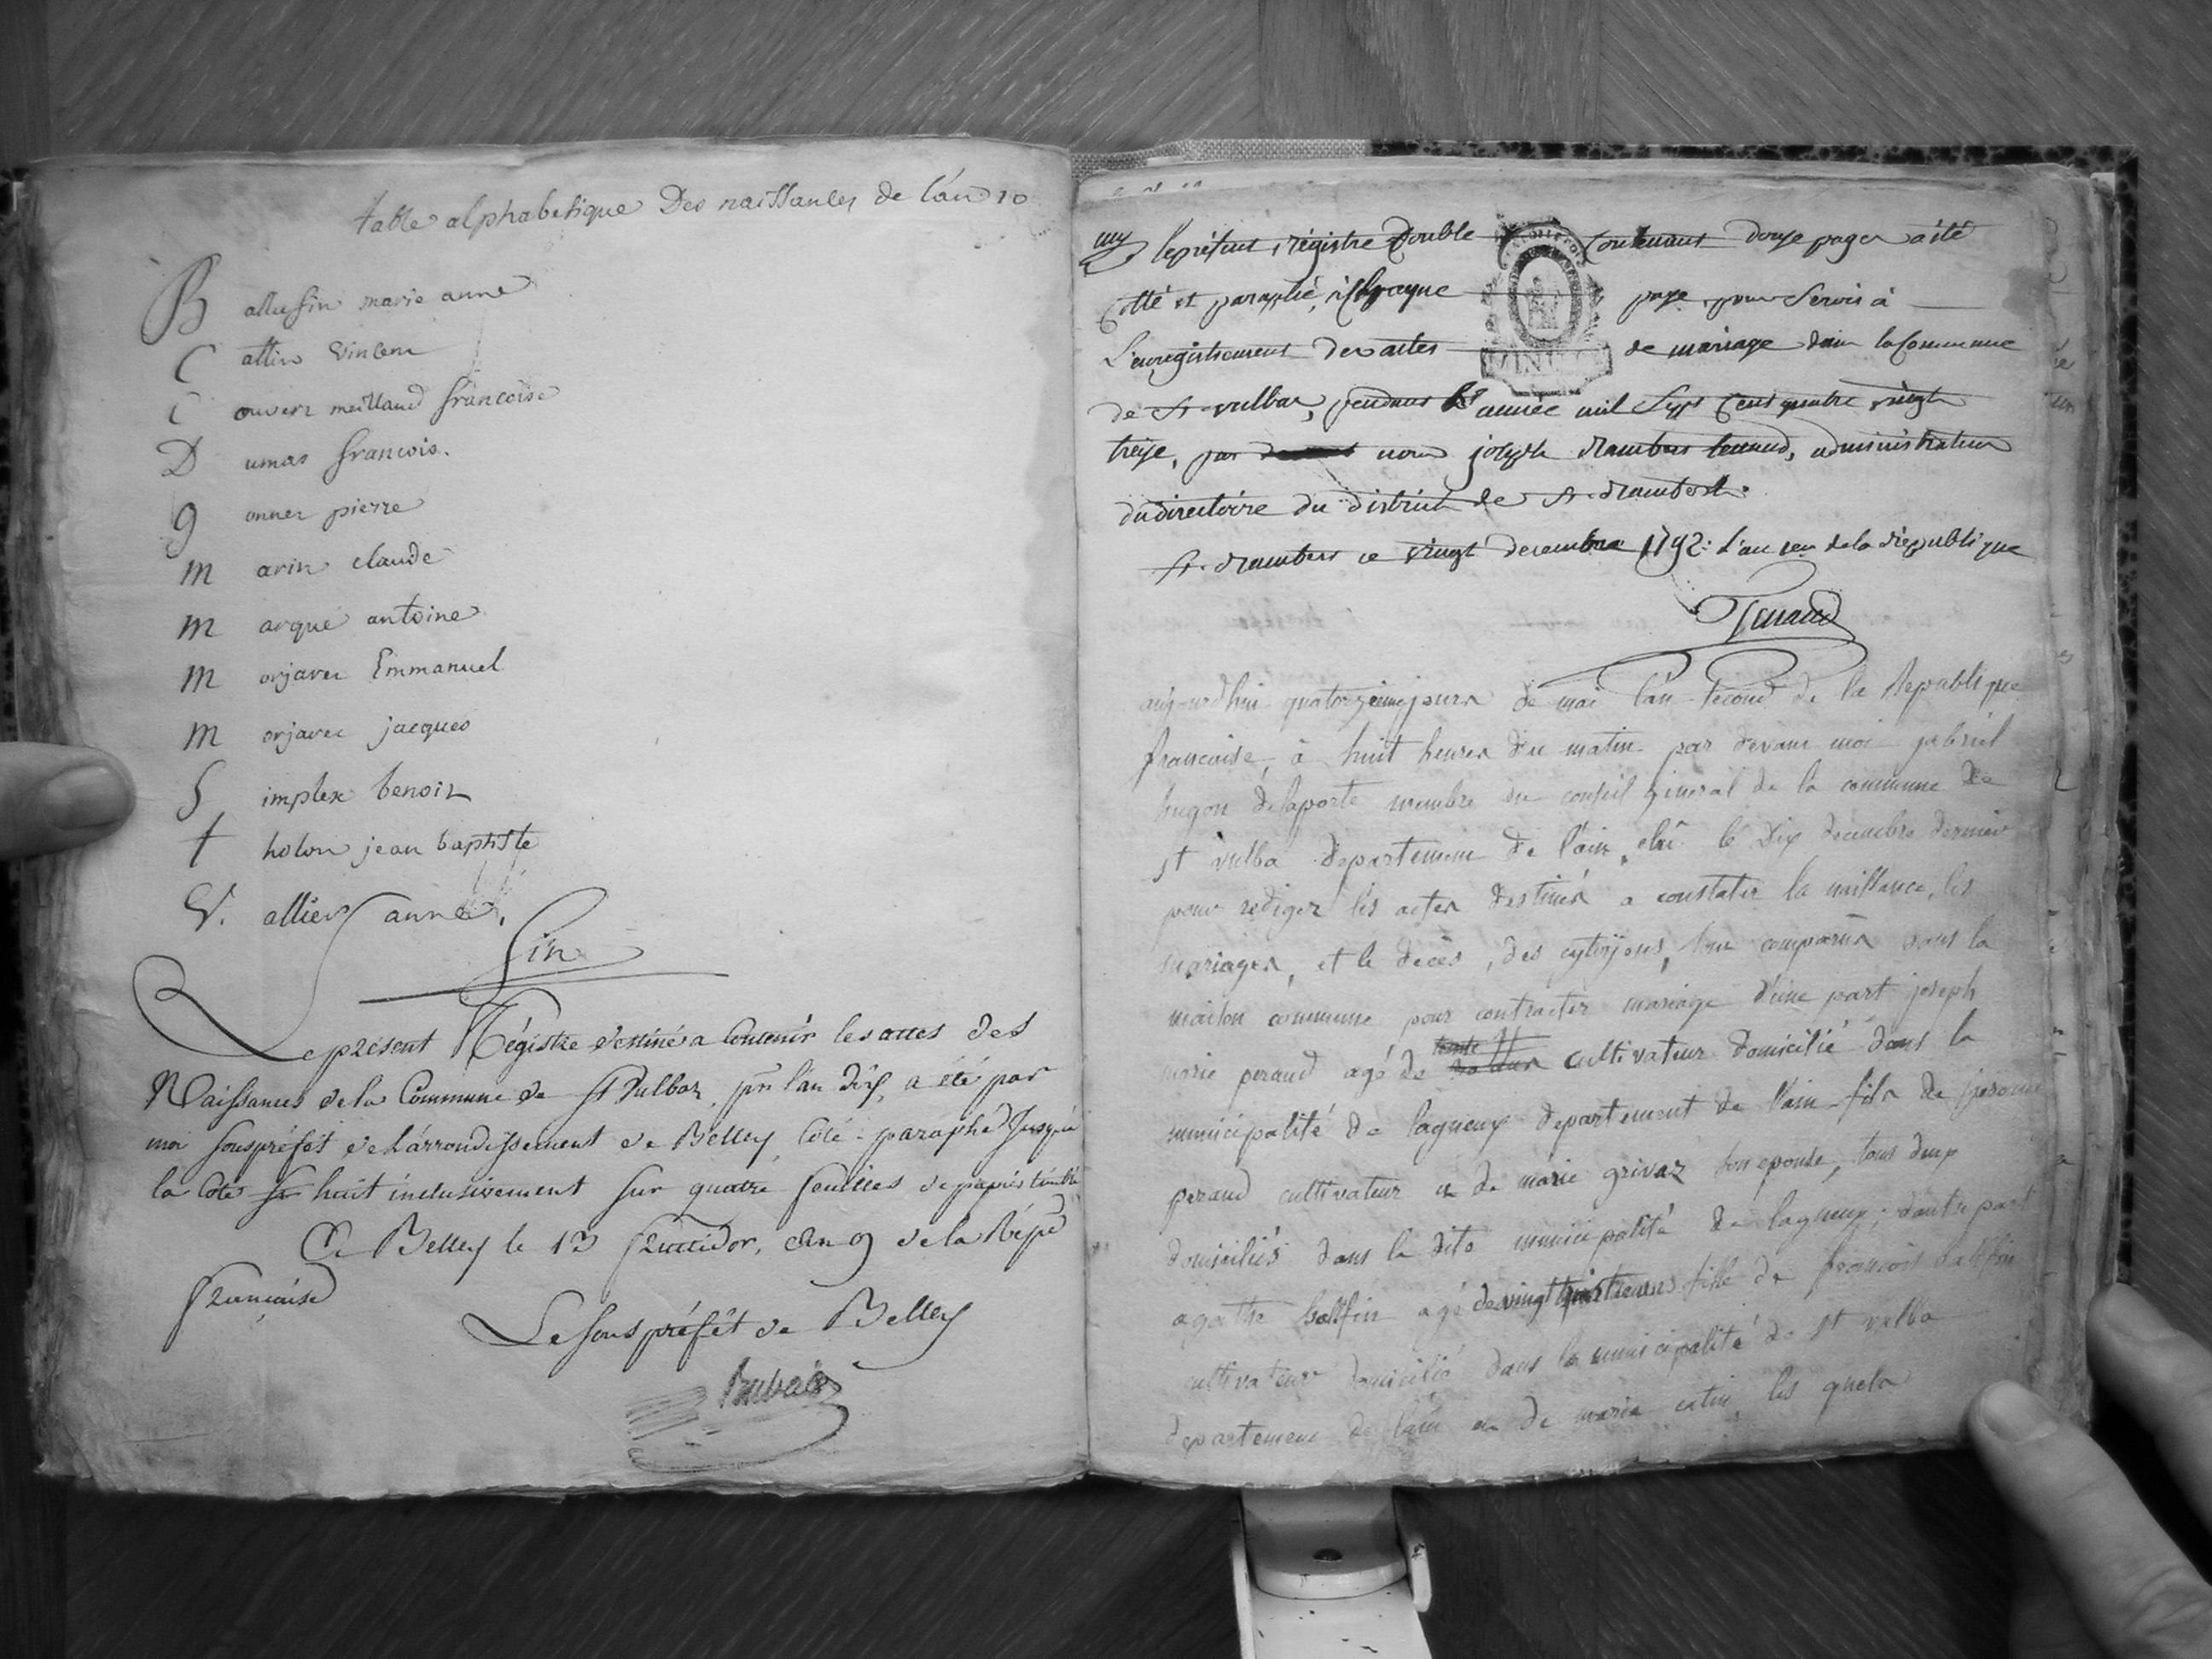 table alphabetique Des naissances de l'an 10
B allufin marie anne
C attin Vincent
C ouvert meilland francoise
D umas francois.
g onnet pierre
m arin claude
m arque antoine
m orjaret Emmanuel
m orjaret jacques
S implex benoit
t holon jean baptiste
V. allier anne.
fin
Le présent Régistre destiné a Contenir les actes des
Naissances de la Commune de St Vulbas pr l'an dix, a été par
moi souspréfét de L'arrondissement de Belley Coté - paraphé jusqu'à
la Cote huit inclusivement sur quatre feuilles de papier timbré
A Belley le 13 fructidor, an 9 de la Répe
française
Le souspréfét de Belley
le présent régistre double contenant douze pages a été
Cotté et paraphé, à chaque page, pour servir à
L'enregistrement des actes de mariage dans la Commune
de St. vulbas, pendant l'année mil sept cent quatre vingt
treize, par nous joseph rambert tenand, administrateur
du directoire du district de St. rambert.
St. rambert ce vingt decembre 1792: l'an 1er de la république
Tenand
aujourd'hui quatorzieme jours de mai l'an second de la Republique
francaise, à huit heures du matin par devant moi gabriel
hugon delaporte membre du conseil general de la commune de
st vulba departement de l'ain, elû le dix decembre dernier
pour rediger les actes destinés a constater la naissance, les
mariages, et le deces, des cytoyens, sont comparus dans la
maison commune pour contracter mariage d'une part joseph
marie peraud agé de cultivateur domicilié dans la
municipalité de lagneux departement de l'ain fils de jerome
peraud cultivateur et de marie grivaz son epouse, tous deux
domiciliés dans la dite municipalité de lagneux; d'autre part
agathe ballfin agé de vingt fille de francois ballfin
cultivateur domicilié dans la municipalité de st vulba
departement de l'ain et de marie catin les quels